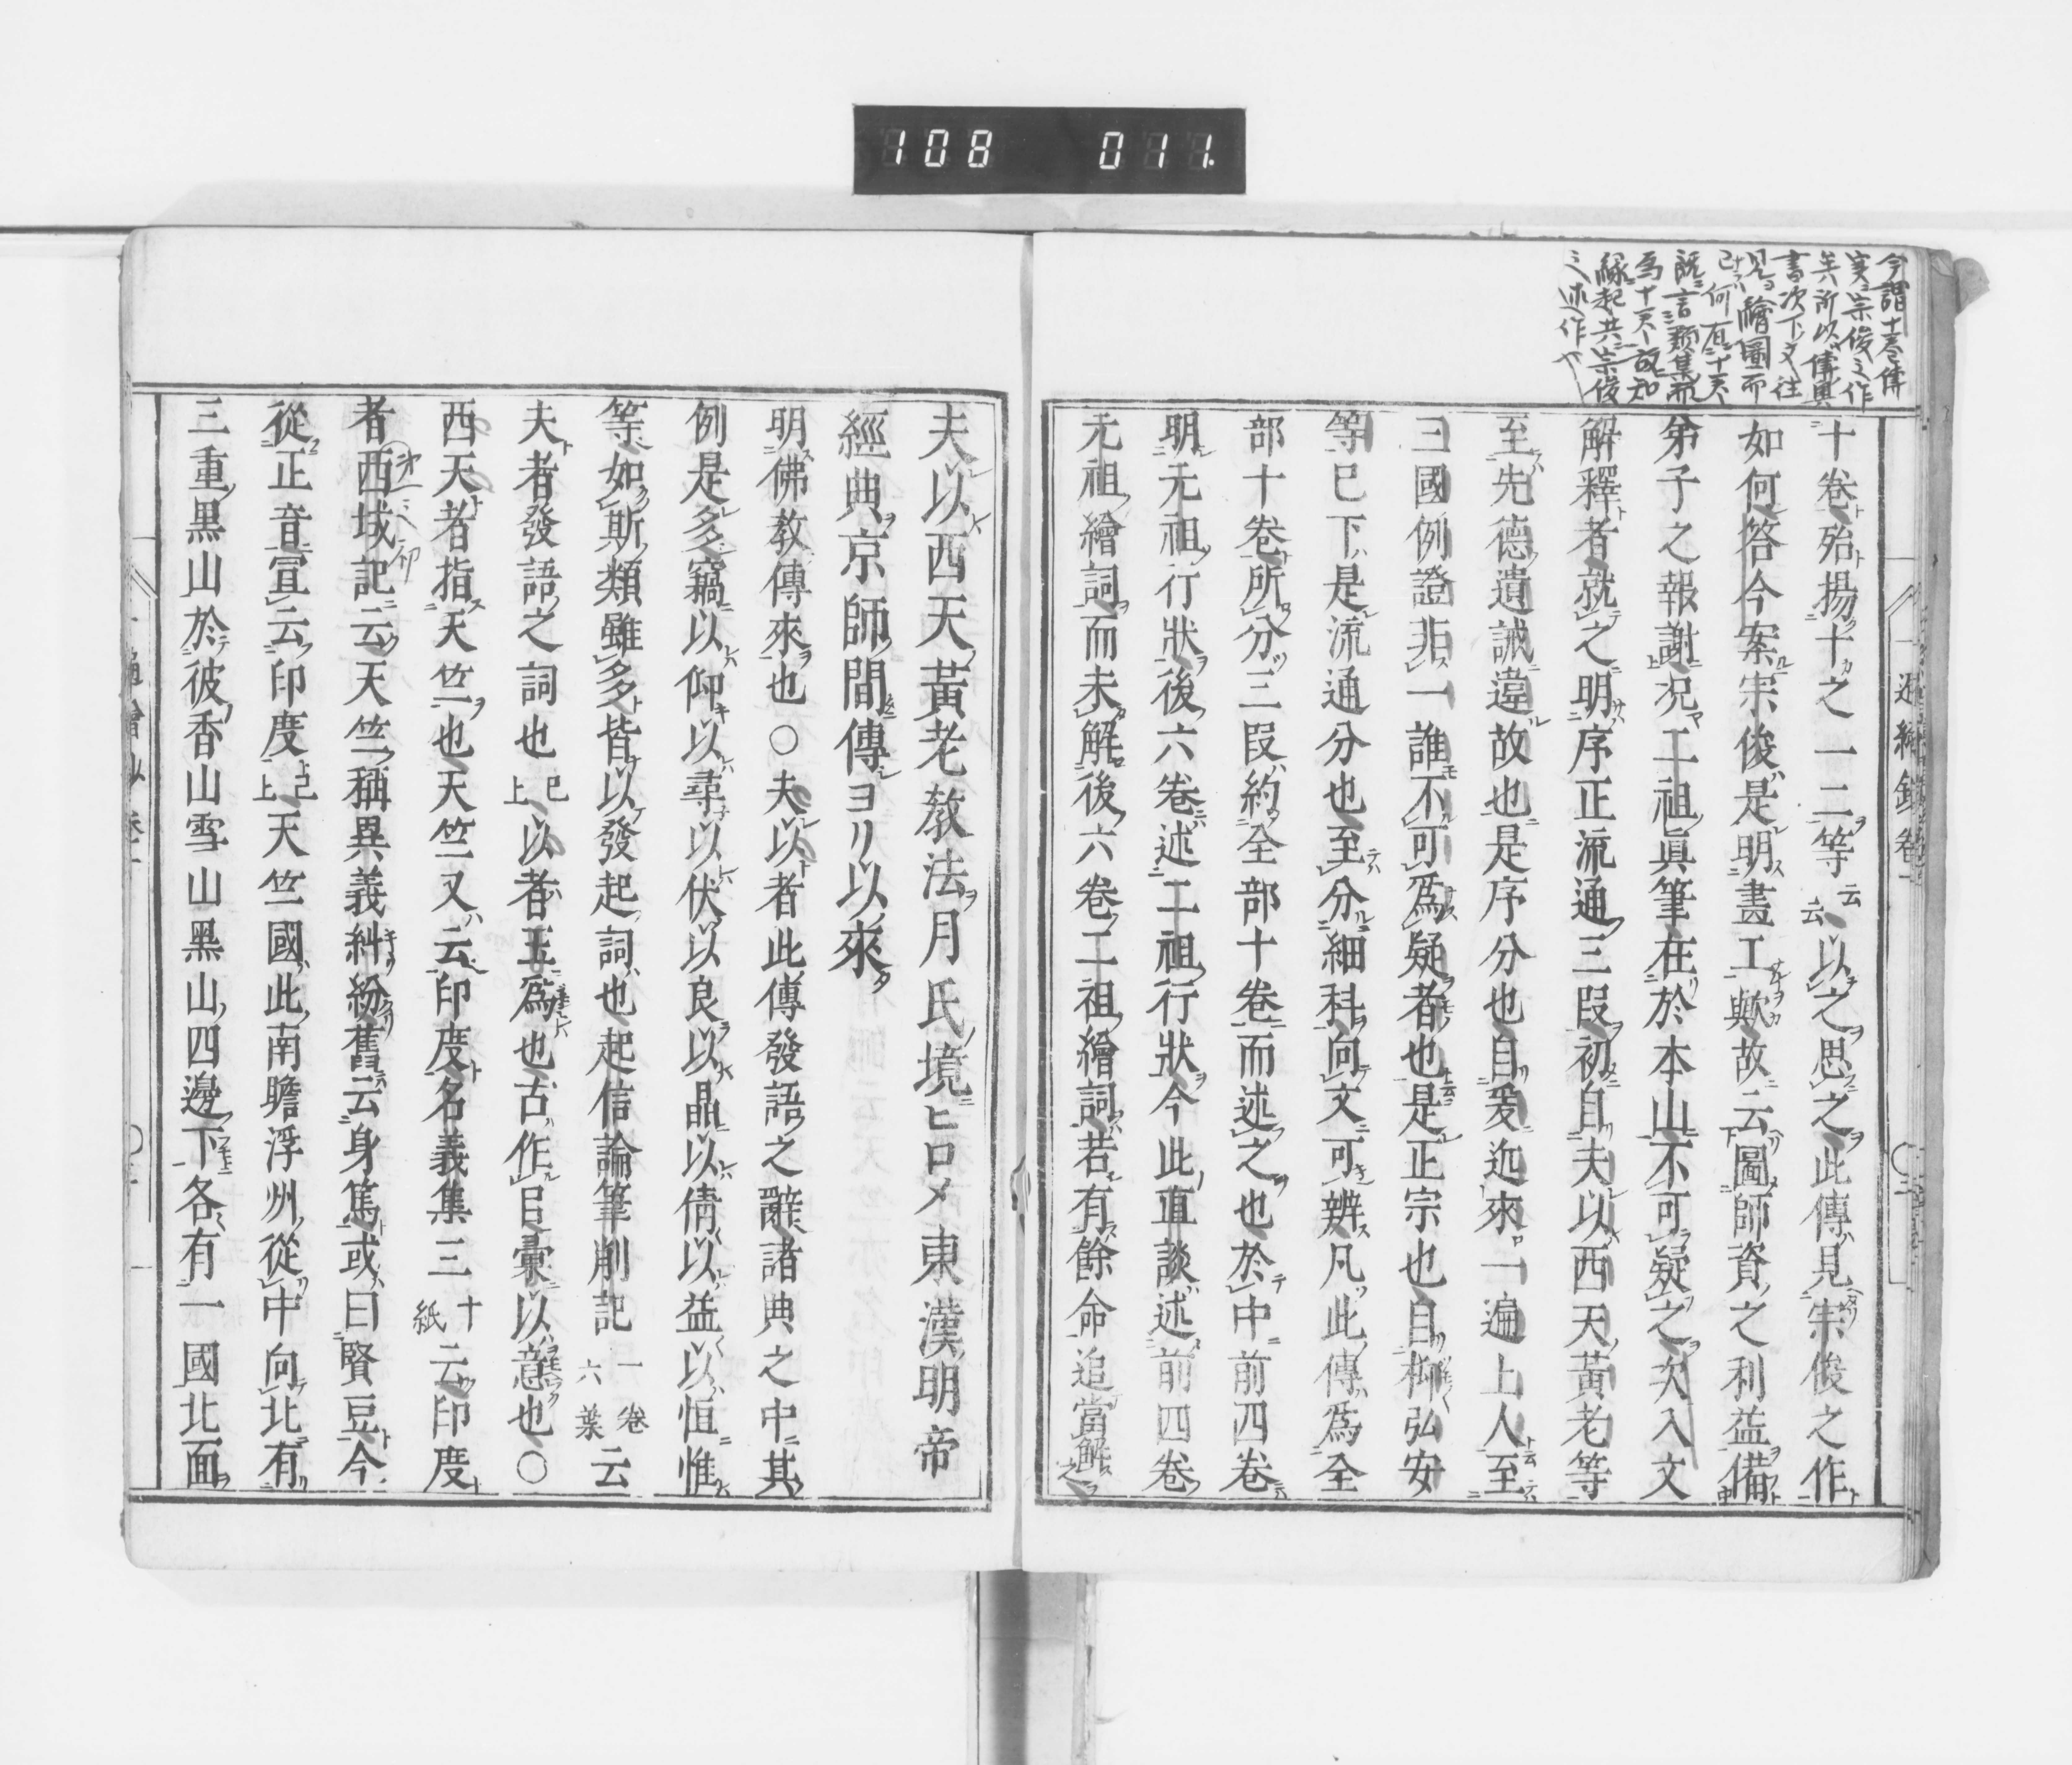 108 011.
今謂十巻傳
実宗俊之作
矣所以傳與
書次下文往
見繪圖而
已何有十天
既言類集
為十天故知
縁起共宗俊
之述作也
十卷殆揚十之一二等云云以之思之此傳見宗俊之作
如何答今案宗俊是明畫工歟故云圖師資之利益備
弟子之報謝況二祖眞筆在於本山不可疑之次入文
解釋者就之明序正流通三段初自夫以西天黃老等
至先德遺誡違故也是序分也自爰迩來一遍上人至
三國例證非一誰不可爲疑者也是正宗也自柳弘安
等巳下是流通分也至分細科向文可辨凡此傳爲全
部十卷所分三段約全部十卷而述之也於中前四卷
明元祖行狀後六卷述二祖行狀今此直談述前四卷
元祖繪詞而未解後六卷二祖繪詞若有餘命追當解之
夫以西天黃老教法月氏境ヒロメ東漢明帝
經典京師間傳ヨリ以來
明佛教傳來也○夫以者此傳發語之辭諸典之中其
例是多竊以仰以尋以伏以良以皛以倩以益以恒惟
等如斯類雖多皆以發起詞也起信論筆削記一卷六葉云
夫者發語之詞也巳上以者玉爲也古作㠯彙以意也○
西天者指天竺也天竺又云印度名義集三十紙云印度
者西域記云天竺稱異義糾紛舊云身篤或曰賢豆今
從正音宣云印度巳上天竺國此南瞻浮州從中向北有
三重黒山於彼香山雪山黒山四邊下各有一國北面